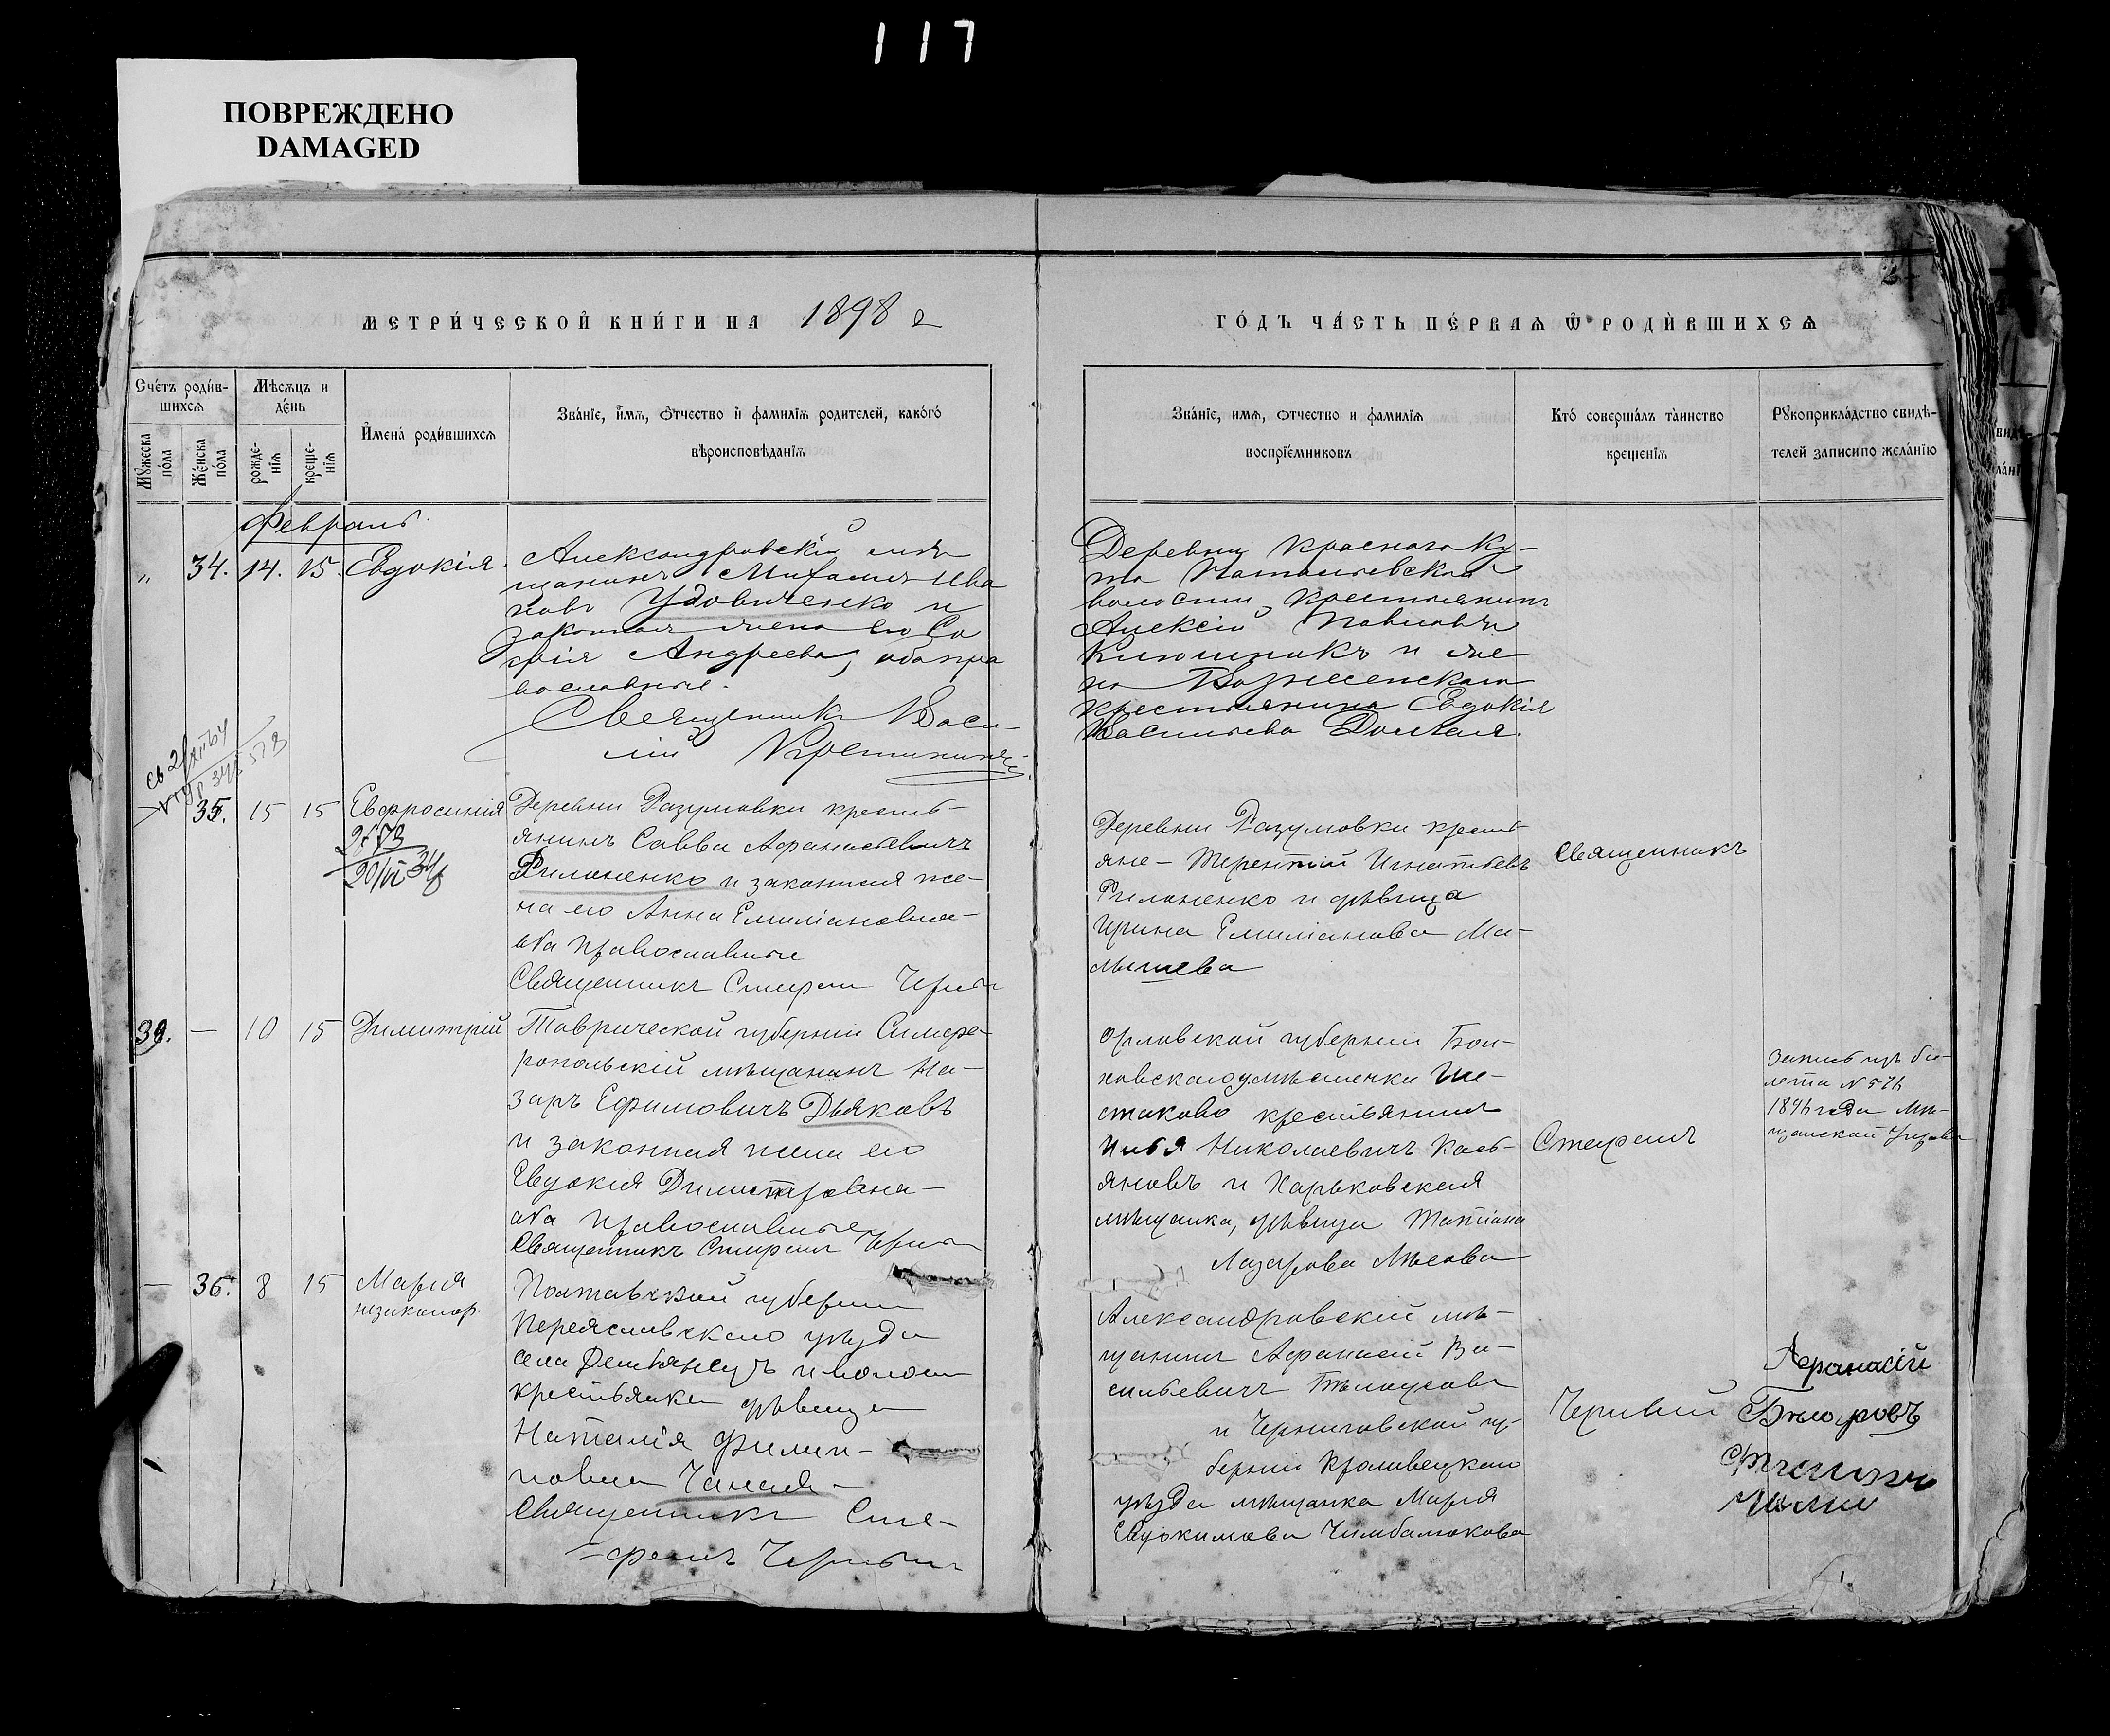 117
ПОВРЕЖДЕНО
DAMAGED
МЕТРИ́ЧЕСКОЙ КНИ́ГИ НА 1898 г
ГО́ДЪ ЧА́СТЬ ПЕ́РВАѦ Ѿ РОДИ́ВШИХСѦ
Сче́тъ роди́в-
шихсѧ
Мꙋ́жеска по́ла
Же́нска по́ла
Мѣсѧцъ и де́нь
рожде-
нїѧ
креще-
нїѧ
И҆мена̀ роди́вшихсѧ
Зва́нїе, и҆́мѧ, ѻ҆́тчество и҆ фамилїѧ родителей, како́гѡ
вѣроисповѣданїѧ
Зва́нїе, имѧ, ѻтчество и фамилїѧ
воспрїе́мниковъ
Кто́ соверша́лъ та̀инство
крещенїѧ
Рꙋкоприкла́дство свидѣ-
телей записи по жела́нїю
Февраль
" 34. 14. 15. Евдокія.
Александровскій мѣ
щанинъ Михаилъ Ива
новъ Удовиченко и
законная жена его Со
фія Андреева, оба пра
вославные.
Священникъ Васи-
лій
Деревни Краснаго Ку-
та
волости, крестьянинъ
Алексій Павловъ
Ключникъ и же
на Вознесенскаго
крестьянина Евдокія
Васильева
— 35. 15 15 Евфросинія
Деревни Разумовки кресть-
янинъ Савва Афанасьевичъ
Филоненко и законная же-
на его Анна Емиліановна-
оба православные
Священникъ Стефан
Деревни Разумовки кресть-
яне - Терентій Игнатьевъ
Филоненко и дѣвица
Ирина Емиліанова Ма-
Священникъ
— 10 15 Димитрій
Таврической губерніи Симфе-
ропольскій мѣщанинъ На-
заръ Ефимовичъ Дьяковъ
и законная жена его
Евдокія Димитровна-
оба православные
Священникъ Стефан
Орловской губерніи Бол-
ховского
стаково крестьянинъ
Илья Николаевичъ Касъ-
яновъ и Харьковская
мѣщанка, дѣвица Татіана
Лазарова
Стефанъ
Запись изъ би-
лета № 576
189 года Мѣ-
щанской Управы
— 36. 8 15 Марія
незаконор.
Полтавской губерніи
Переяславскаго уѣзда
села и волости
крестьянка дѣвица
Наталія Филип-
повна
Священникъ Сте-
фанъ
Александровскій мѣ-
щанинъ Афанасій Ва-
сильевичъ
и Черниговской гу-
берніи Кролевецкаго
уѣзда мѣщанка Марія
Евдокимова Чимбалюкова
Афанасій